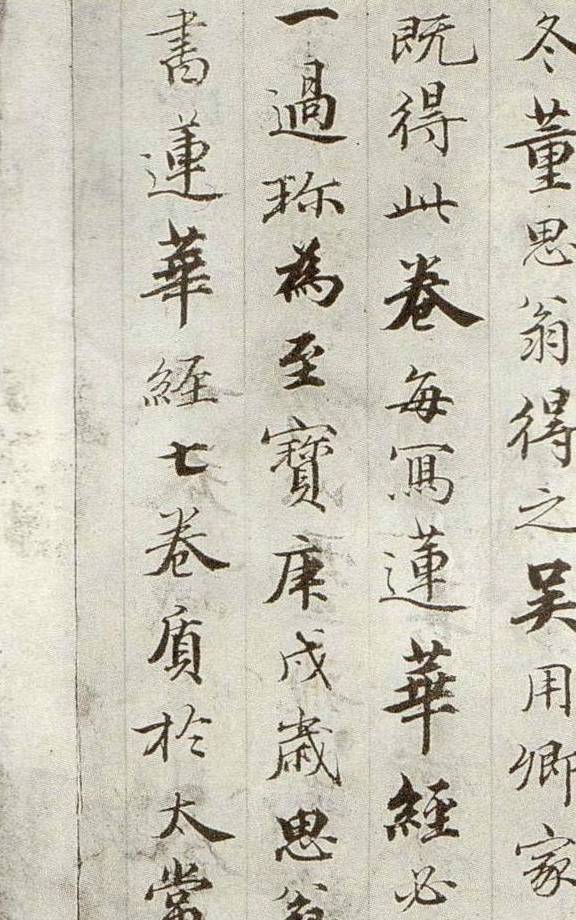 冬董思翁得之吴用卿家
既得此卷每冩蓮華經必
一過珎為至寶庚戌歳思翁
書蓮華經七卷質於太常